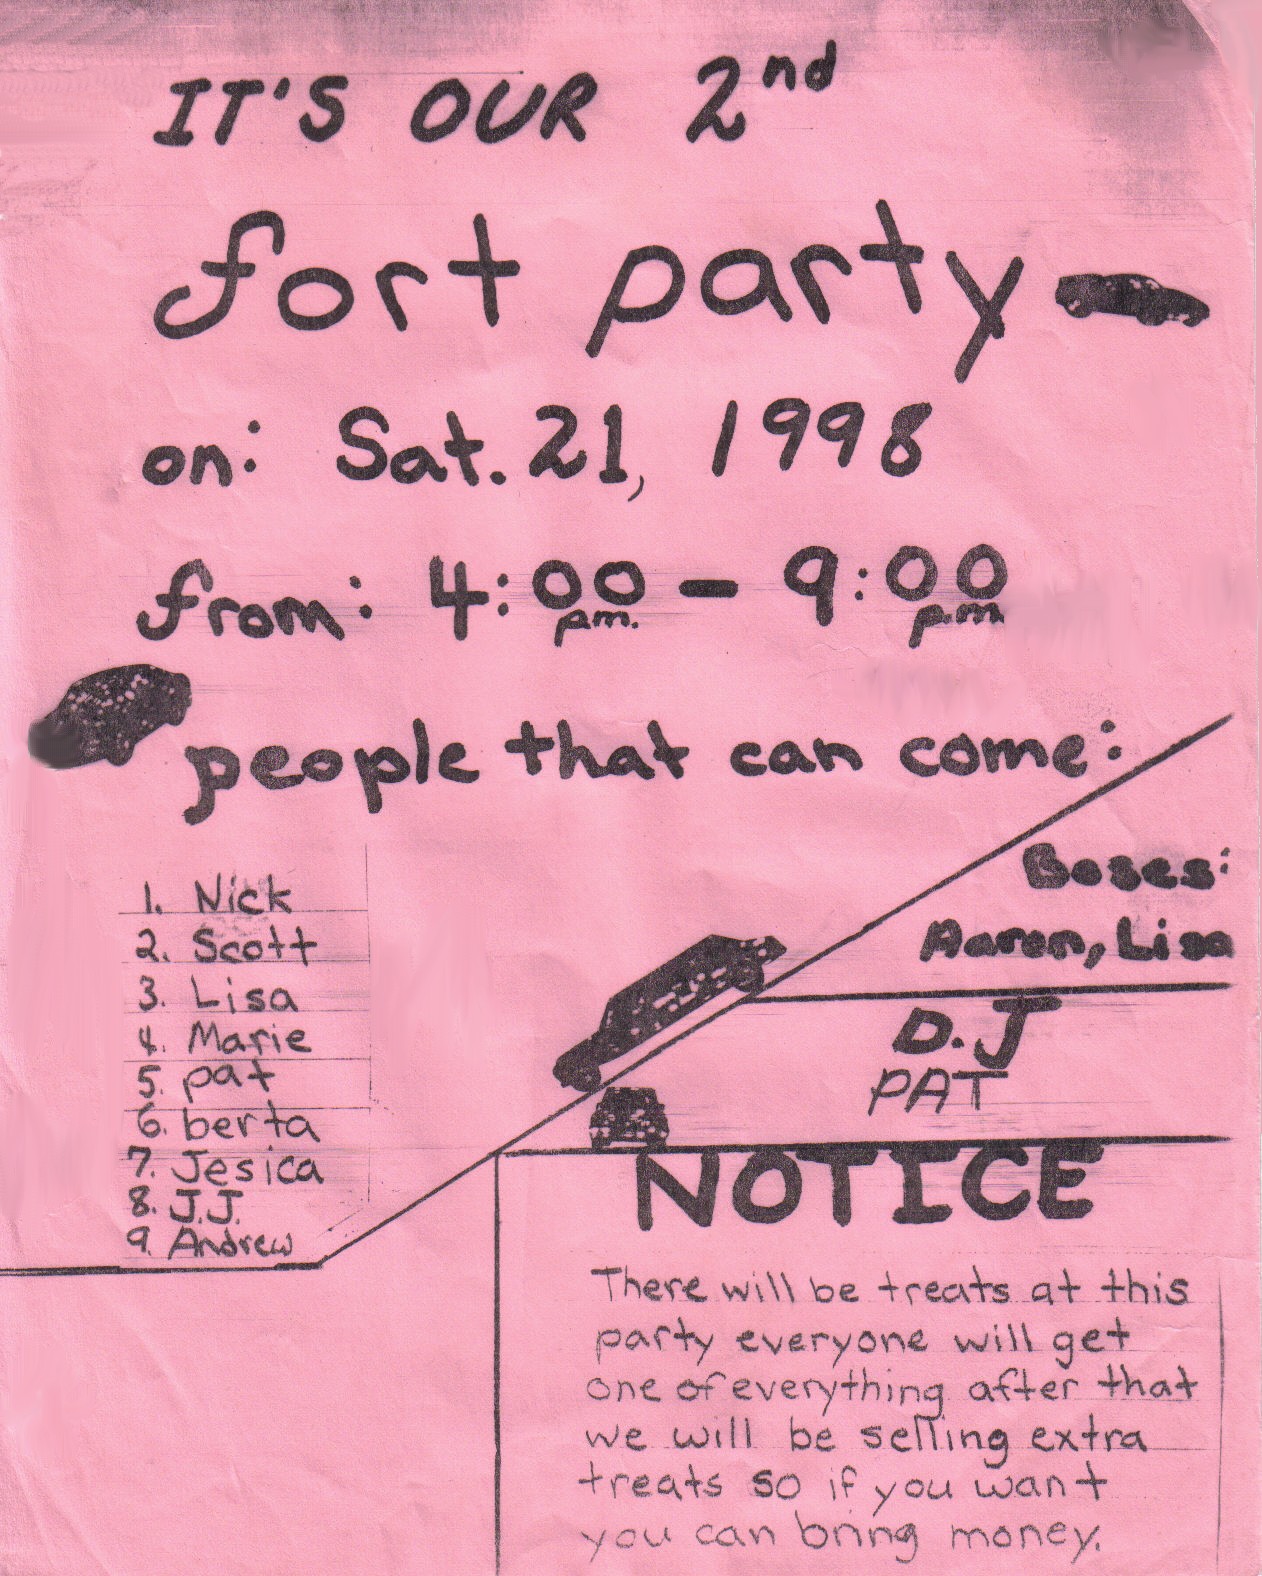 IT'S OUR 2nd
fort party
on: Sat. 21, 1998
from: 4:00 p.m. - 9:00 p.m.
people that can come:
1. Nick
2. Scott
3. Lisa
4. Marie
5. pat
6. berta
7. Jesica
8. J.J.
9. Andrew
Boses:
Aaron, Lisa
D.J
PAT
NOTICE
There will be treats at this
party everyone will get
one of everything after that
we will be selling extra
treats so if you want
you can bring money.